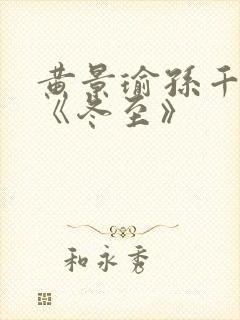 黄景瑜孫千
《冬至》
和永秀